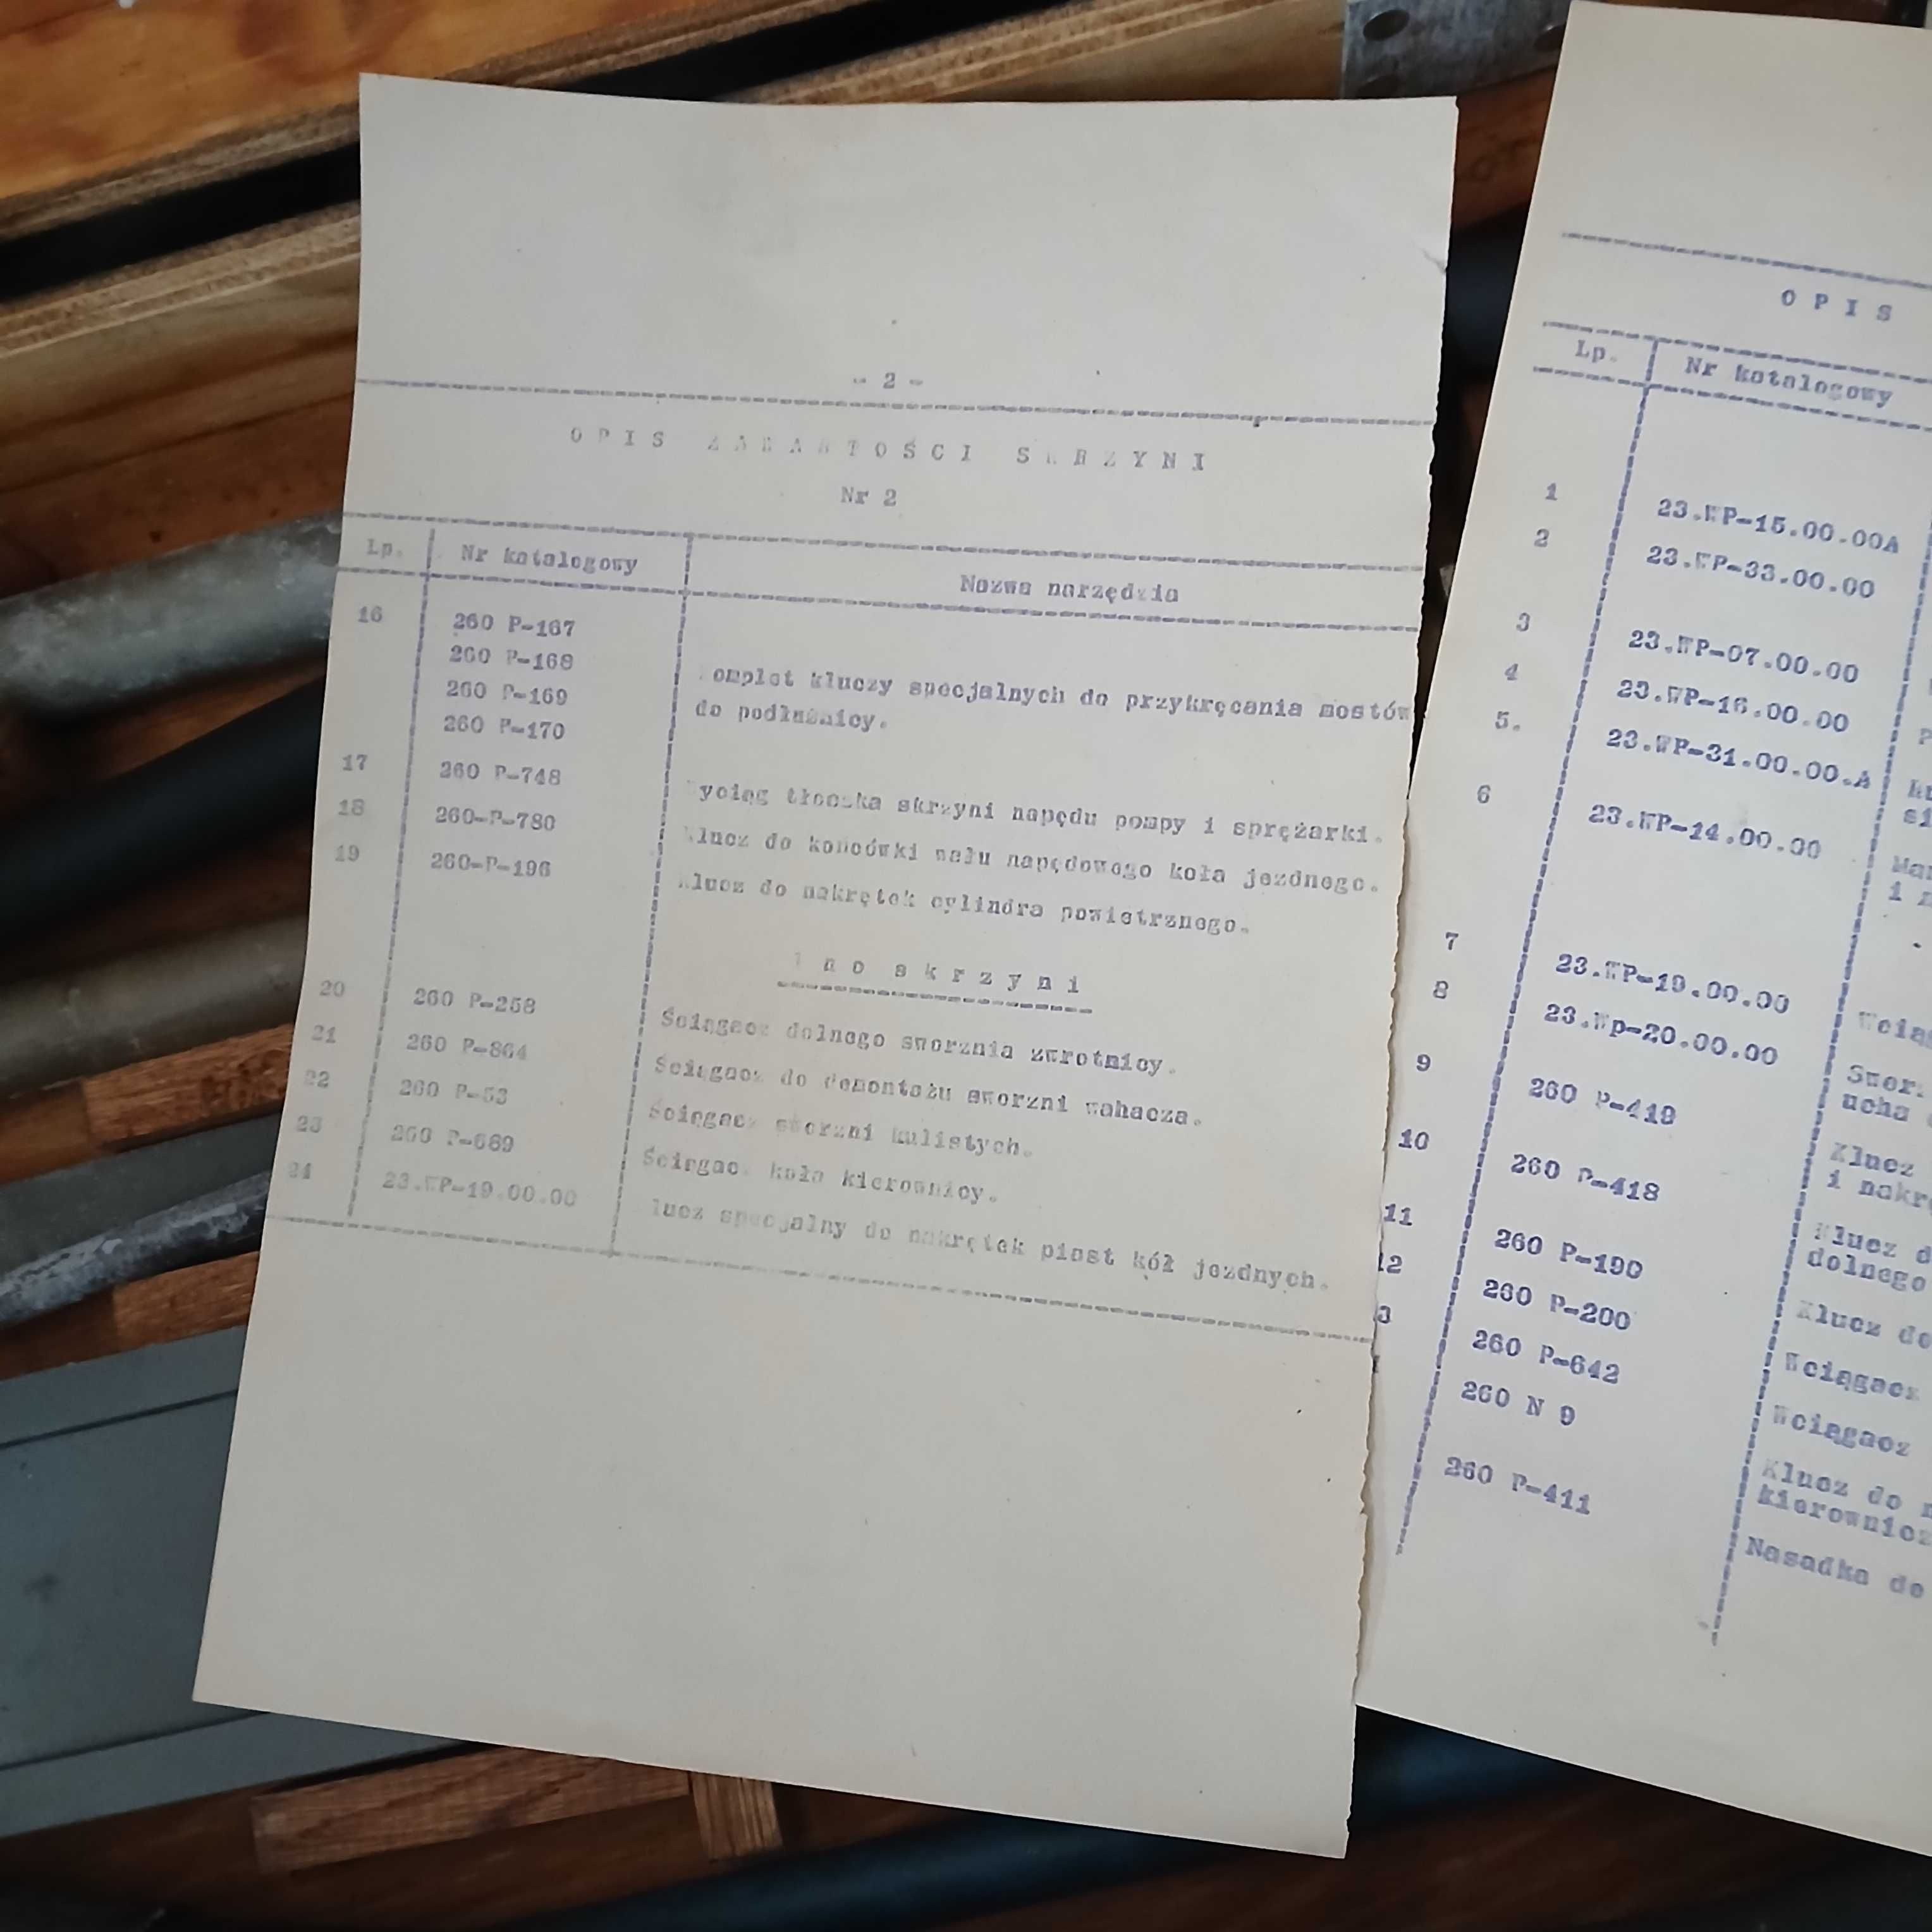 - 2 -
OPIS ZAWARTOŚCI SKRZYNI
Nr 2
Lp. Nr katalogowy Nazwa narzędzia
16 260 P-167
260 P-168
260 P-169 omplet kluczy specjalnych do przykręcania mostów
260 P-170 do podłużnicy.
17 260 P-748 yciąg tłoczka skrzyni napędu pompy i sprężarki.
18 260-P-780 lucz do końcówki wału napędowego koła jezdnego.
19 260-P-196 lucz do nakrętek cylindra powietrznego.
no skrzyni
20 260 P-258 Ściągacz dolnego sworznia zwrotnicy.
21 260 P-864 Ściągacz do demontażu sworzni wahacza.
22 260 P-53 Ściągacz sworzni kulistych.
23 260 P-689 Ściągac koła kierownicy.
24 23.WP-19.00.00 lucz specjalny do nakrętek piast kół jezdnych.
OPIS
Lp. Nr katalogowy
1 23.WP-15.00.00A
2 23.WP-33.00.00
3 23.WP-07.00.00
4 23.WP-16.00.00
5. 23.WP-31.00.00.A
si
6 23.WP-14.00.00 Man
i n
7 23.WP-19.00.00 Wciąg
8 23.Wp-20.00.00 Swor
ucha
9 260 P-419 Klucz
i nakrę
10 260 P-418 Klucz d
dolnego
11 260 P-190 Klucz do
12 260 P-200 Wciągacz
3 260 P-642 Wciągacz
260 N 9 Klucz do n
kierownicz
260 P-411 Nasadka do